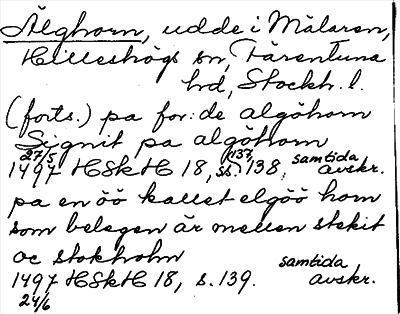 Älghorn, udde i Mälaren,
Hilleshögs sn, Färentuna
hd, Stockh. l.
(forts.) pa for:de algöhorn
Signit pa algöhorn
27/5 1497 HSkH 18, ss. 137, 138, samtida avskr.
pa en öö kallet elgöö horn
som belegen är mellen stekit
oc stokholm
1497 HSkH 18, s. 139. samtida avskr.
24/6